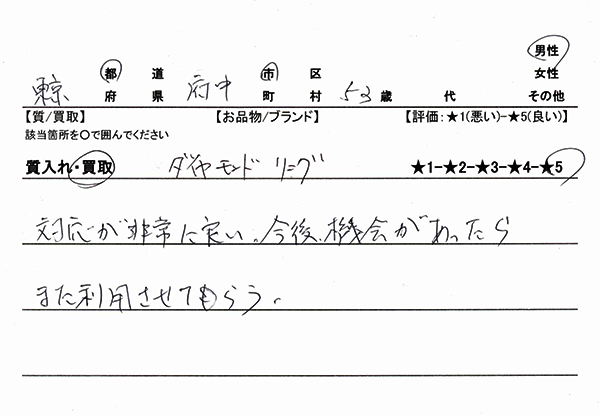 男性
東京 都 道 府中 市 区 女性
府 県 町 村 53 歳 代 その他
【質/買取】 【お品物/ブランド】 【評価:★1(悪い)-★5(良い)】
該当箇所を○で囲んでください
質入れ・買取 ダイヤモンド リング ★1-★2-★3-★4-★5
対応が非常に良い。今後、機会があったら
また利用させてもらう。